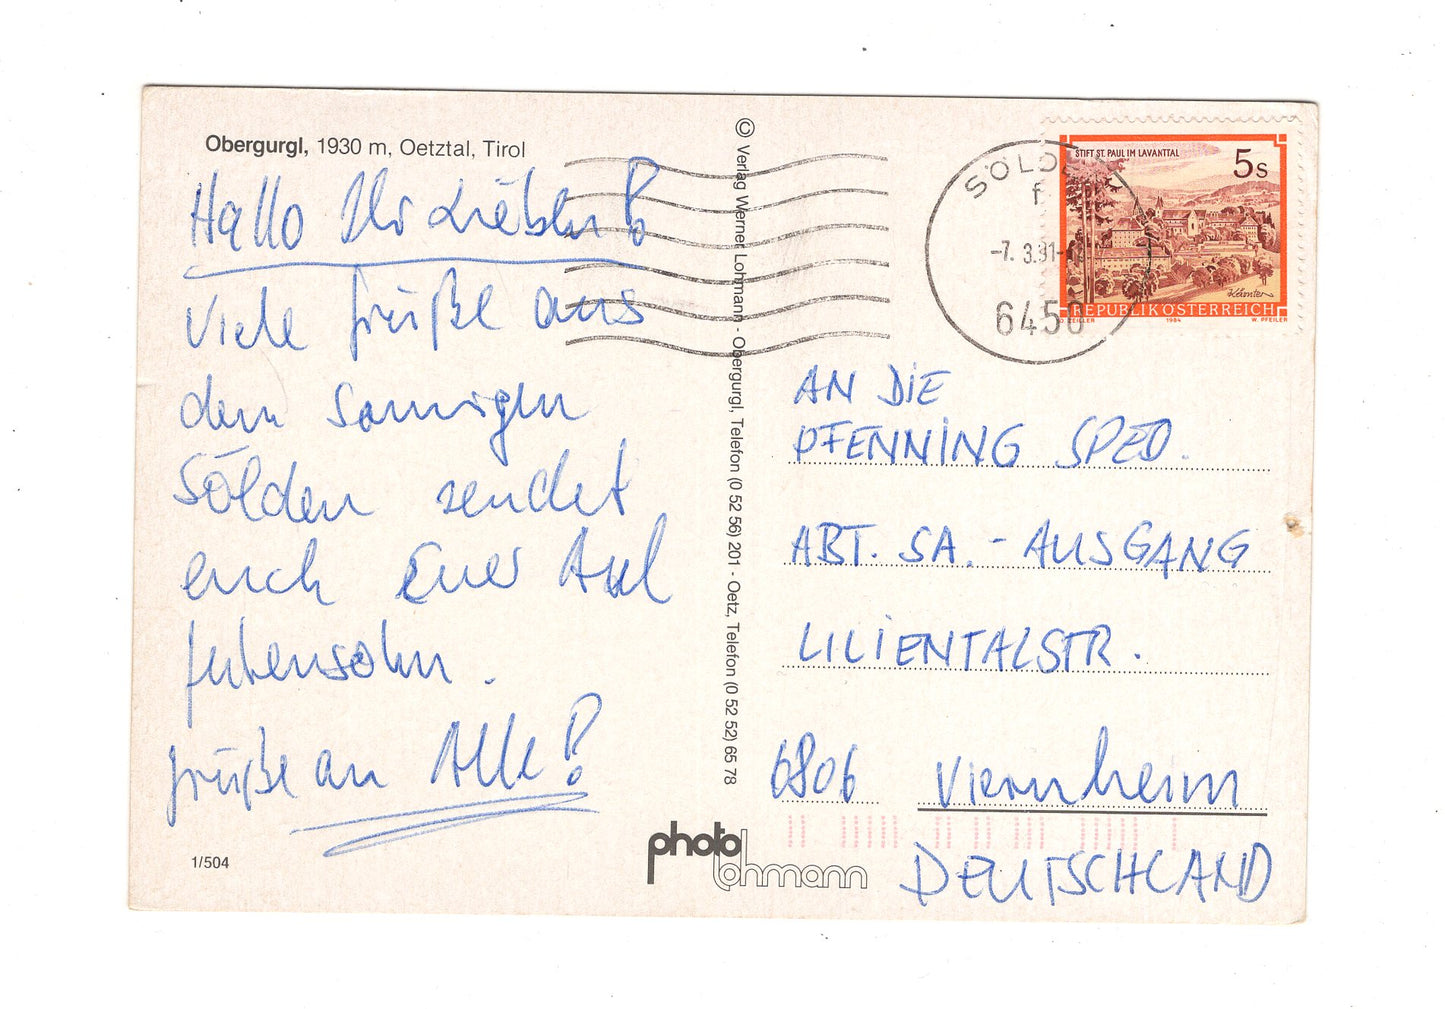 Obergurgl, 1930 m, Oetztal, Tirol
Hallo Ihr Lieben!
Viele Grüße aus
dem sonnigen
Sölden sendet
euch Euer Axel
Grüße an Alle!
1/504
© Verlag Werner Lohmann - Obergurgl, Telefon (0 52 56) 201 - Oetz, Telefon (0 52 52) 65 78
photo
lohmann
SÖLDE
f
-7. 3.91-
6450
STIFT ST. PAUL IM LAVANTTAL
5s
Kärnten
REPUBLIK ÖSTERREICH
O ZEILER 1984 W. PFEILER
AN DIE
PFENNING SPED.
ABT. SA. - AUSGANG
LILIENTALSTR.
6806 Viernheim
DEUTSCHLAND